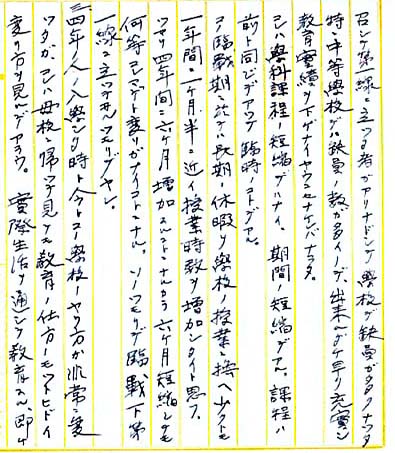 召シケ第一線ニ立ツ者ガアリナドシテ學校ガ缺員ガ多クナツタ
特ニ中等學校デハ缺員ノ数ガ多イノデ、出来ルダケ早ク充實シ
教育實績ヲ下ゲナイヤウニセナケレバナラヌ。
コレハ學科課程ノ短縮デハナイ、期間短縮デアル。課程ハ
前ト同ジデアツテ臨時ノコトデアル。
コノ臨戰期ニ於テハ長期ノ休暇ヲ學校ノ授業ニ換ヘ少クトモ
一年間ニ一ケ月半ニ近イ授業時数ヲ増加シタイト思フ。
ツマリ四年間ニ六ケ月増加スルコトニナルカラ六ケ月短縮シテモ
何等コレマデト変リガナイコトニナル。ソノツモリデ臨戰下第
一線ニ立ツテ
三、四年 入學シタ時ト今トコノ學校ノヤリ方ガ非常ニ変
ツタガ、コレハ母校ニ帰ツテ見ケ教育ノ仕方ノモツトヒドイ
変リ方ヲ見ルデアラウ。 實際生活ヲ通シテ教育スル、即チ